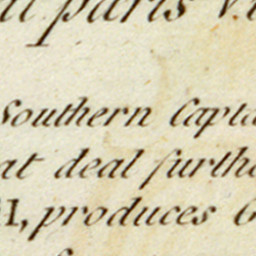 parts
Southern Capta
at deal furthe
I, produces